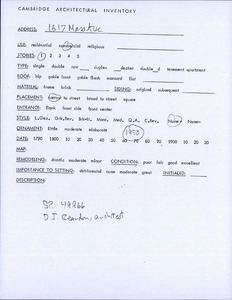 CAMBRIDGE ARCHITECTURAL INVENTORY
ADDRESS: 1617 Mass Ave
USE: residential commercial religious
STORIES: 1 2 3 4 5
TYPE: single double row duplex decker double_d tenement apartment
ROOF: hip gable front gable flank mansard flat
MATERIAL: frame brick SIDING: original subsequent
PLACEMENT: narrow to street broad to street square
ENTRANCE: flank front side front center
STYLE: L.Geo. Grk.Rev. Brkt. Mans. Med. Q.A. C.Rev. None
ORNAMENT: little moderate elaborate
DATE: 1790 1800 10 20 30 40 50 60 70 80 90 1900 10 20 30
MAP:
REMODELING: drastic moderate minor CONDITION: poor fair good excellent
IMPORTANCE TO SETTING: detrimental none moderate great INITIALED:
DESCRIPTION:
49966
D.J. architect